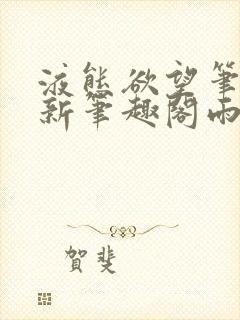 液態欲望筆
新筆趣閣兩
賀斐